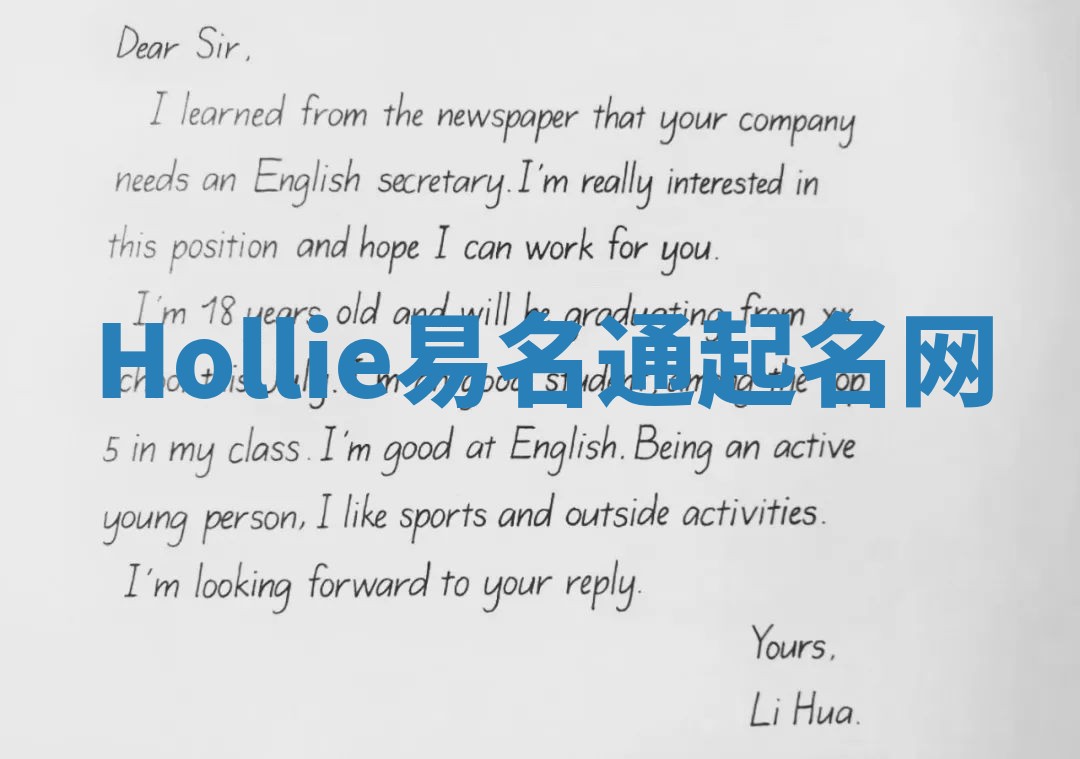 Dear Sir,
I learned from the newspaper that your company
needs an English secretary. I'm really interested in
this position and hope I can work for you.
I'm 18 years old and will be graduating from xx
Hollie易名通起名网
school this July. I'm a good student, among the top
5 in my class. I'm good at English. Being an active
young person, I like sports and outside activities.
I'm looking forward to your reply.
Yours,
Li Hua.